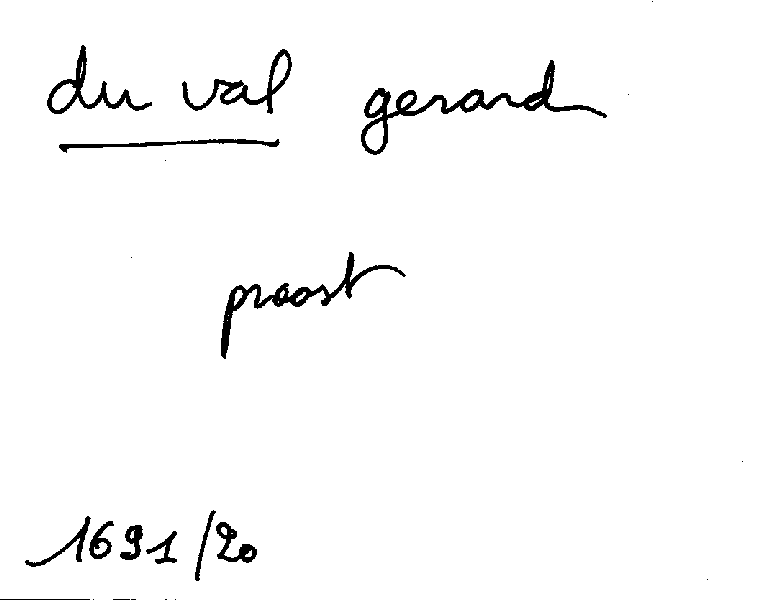 du val gerard
proost
1691/20